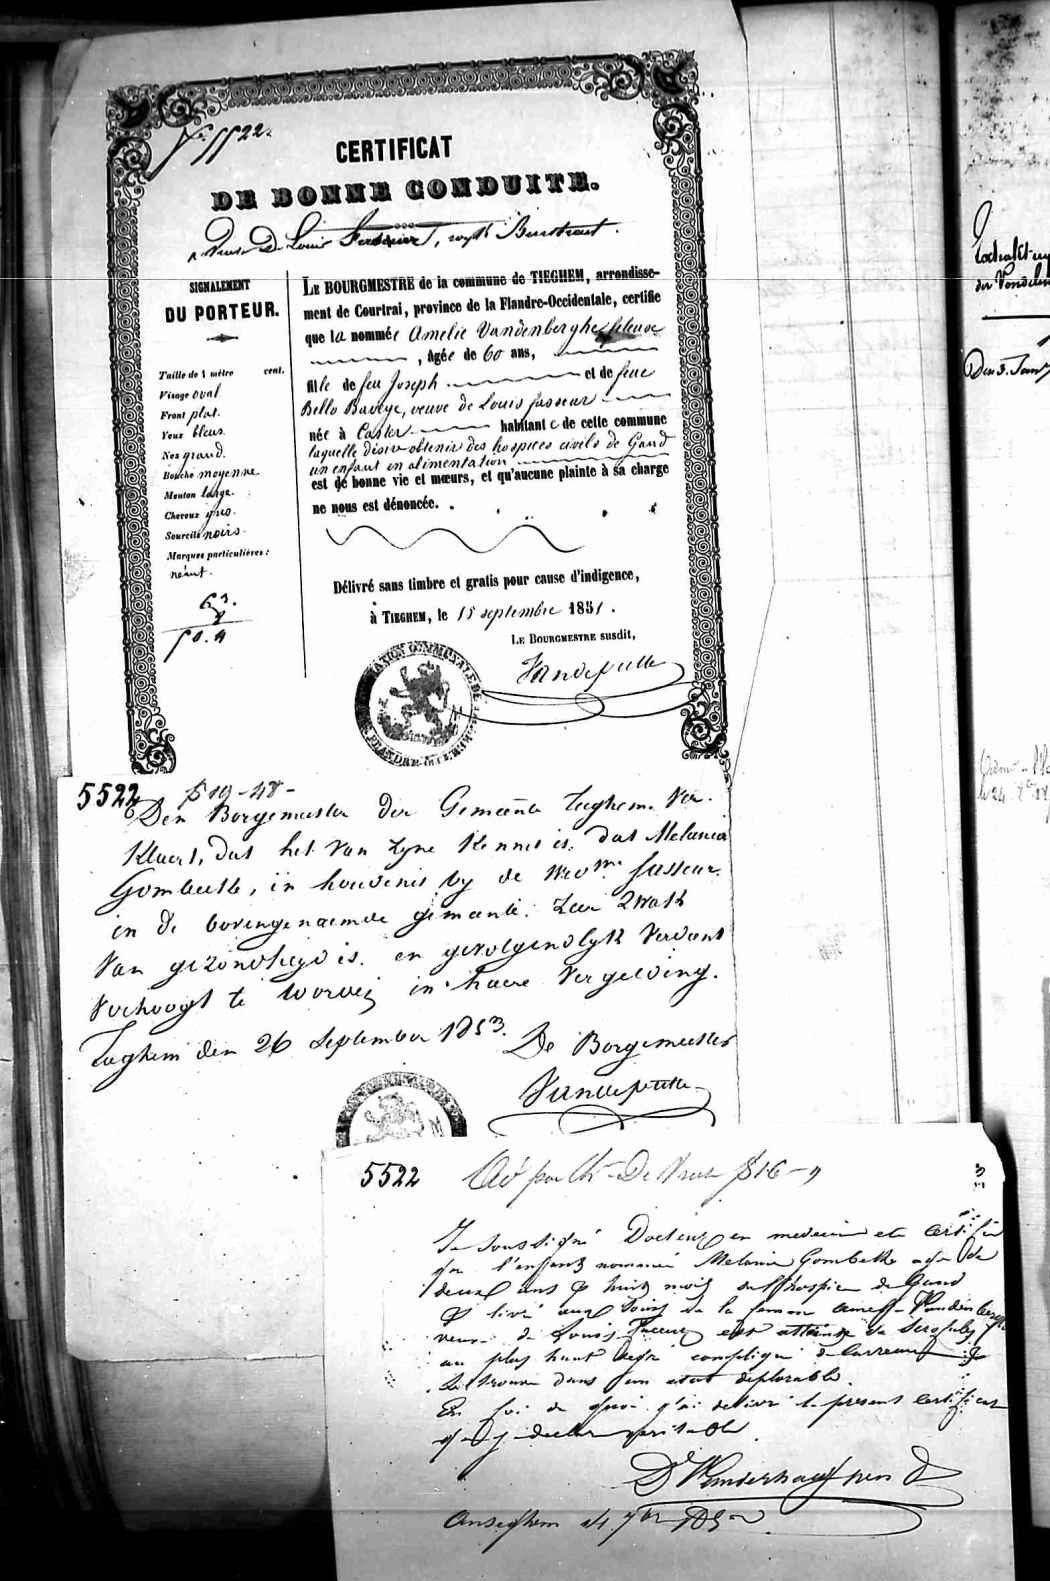 No 5522.
CERTIFICAT
DE BONNE CONDUITE.
Veuve De Louis
SIGNALEMENT
DU PORTEUR.
Taille de 1 mètre cent.
Visage oval
Front plat.
Yeux bleus.
Nez grand.
Bouche moyenne
Menton large.
Cheveux gris.
Sourcils noirs.
Marques particulières :
néant.
63.
LE BOURGMESTRE de la commune de TIEGHEM, arrondisse-
ment de Courtrai, province de la Flandre-Occidentale, certifie
que la nommée Amelie Vandenberghe
, âgée de 60 ans,
fille de feu Joseph et de feue
veuve de Louis fasseur
née à Caster habitante de cette commune
laquelle désire obtenir des hospices civils de Gand
un enfant en alimentation
est de bonne vie et mœurs, et qu'aucune plainte à sa charge
ne nous est dénoncée.
Délivré sans timbre et gratis pour cause d'indigence,
à TIEGHEM, le 15 septembre 1851.
LE BOURGMESTRE susdit,
Vandeputte
5522
Den Borgemeester der Gemeente Tieghem. Ver-
klaert, dat het van zyne Kennis is, dat Melania
Gombeette, in houdenis by de fasseur.
in de bovengenaemde gemeente. Zeer Zwak
van gezondheyd is. en gevolgendlyk verdient
verhoogt te worden in haere vergelding.
Tieghem den 26 September 1853.
De Borgemeester
Vandeputte
5522
Je soussigné Docteur en medecine etc certifie
que l'enfant nommée Melanie Gombette age de
deux ans & huit mois de l'hospice de Gand
& livré aux soins de la femme Vandenberghe
veuve de Louis est atteinte de scrofules
au plus haut degré compliqué de carreau &
se trouve dans un etat deplorable.
En foi de quoi j'ai delivré le present certificat
que je declare veritable
Anseghem